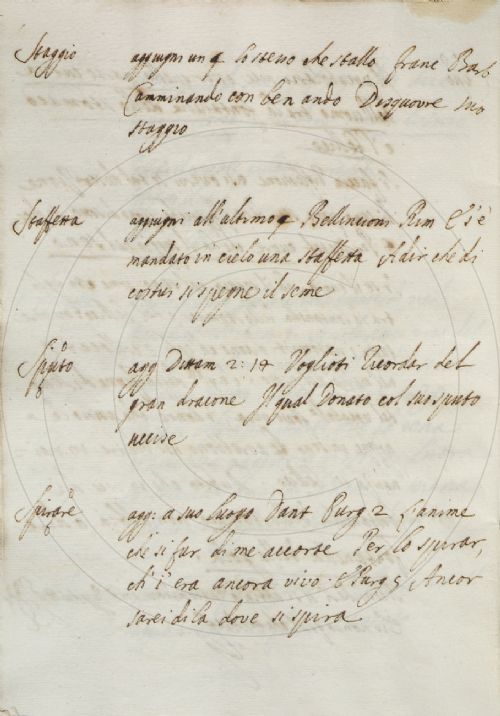 Staggio aggiugni un § lo stesso che stallo franc Barb
Camminando con ben ando Disquovre suo
staggio
Staffetta aggiugni all'ultimo § Bellincioni Rim E s'è
mandato in cielo una staffetta A dir che di
costui si spegne il seme
Sputo agg Dittam 2: 14 Voglioti ricordar del
gran dracone Il qual Donato col suo sputo
uccise
Spirare agg: a suo luogo Dant Purg 2 L'anime
che si fur di me accorte Per lo spirar,
ch'i era ancora vivo E Purg Ancor
sarei di la dove si spira